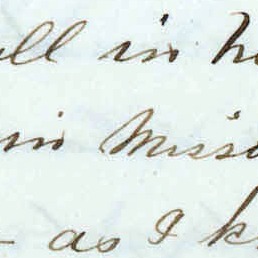 ll in h
in Miss
as I k